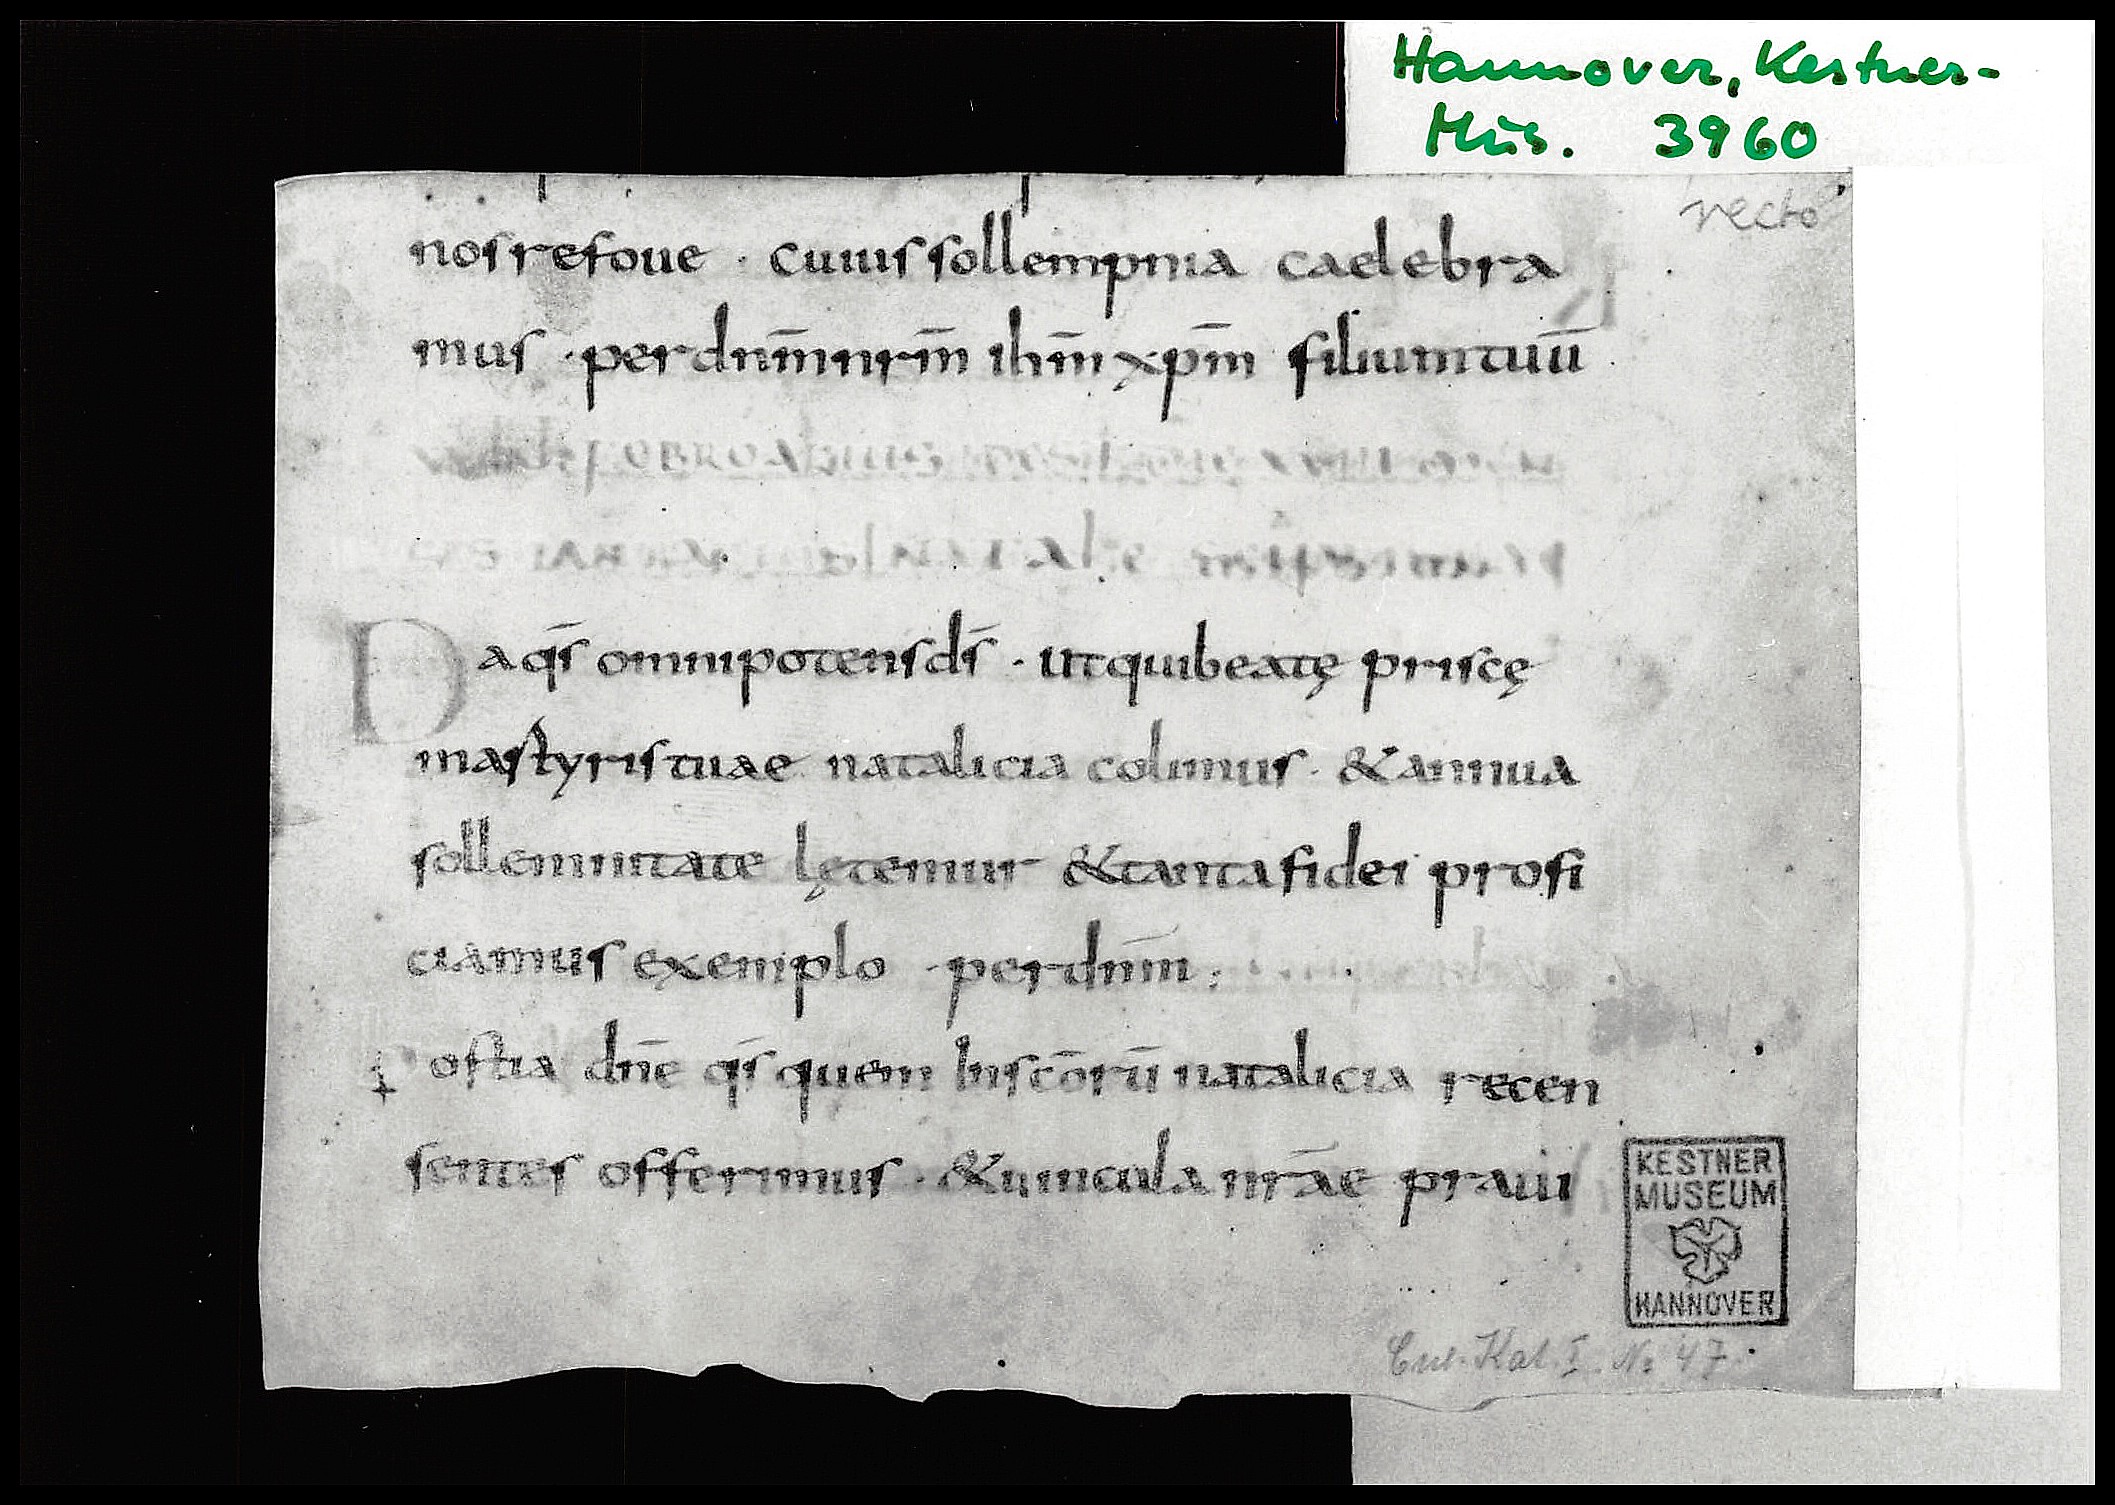 Hannover, Kestner-
Mus. 3960
recto
nos refove · cuius sollempnia caelebra
mus · per dnm̄ nrm̄ ihm̄ xpm̄ filium tuū
Da qs̄ omnipotens ds̄ · ut qui beatę priscę
martyris tuae natalicia colimus · & annua
sollemnitate lętemur & tanta fidei profi
ciamus exemplo · per dnm̄;
ostia dnē qs̄ quem in sc̄orū natalicia recen
sentes offerimus · & uincula nr̄ae praui
KESTNER
MUSEUM
HANNOVER
Cul. Kat. I. No 47.